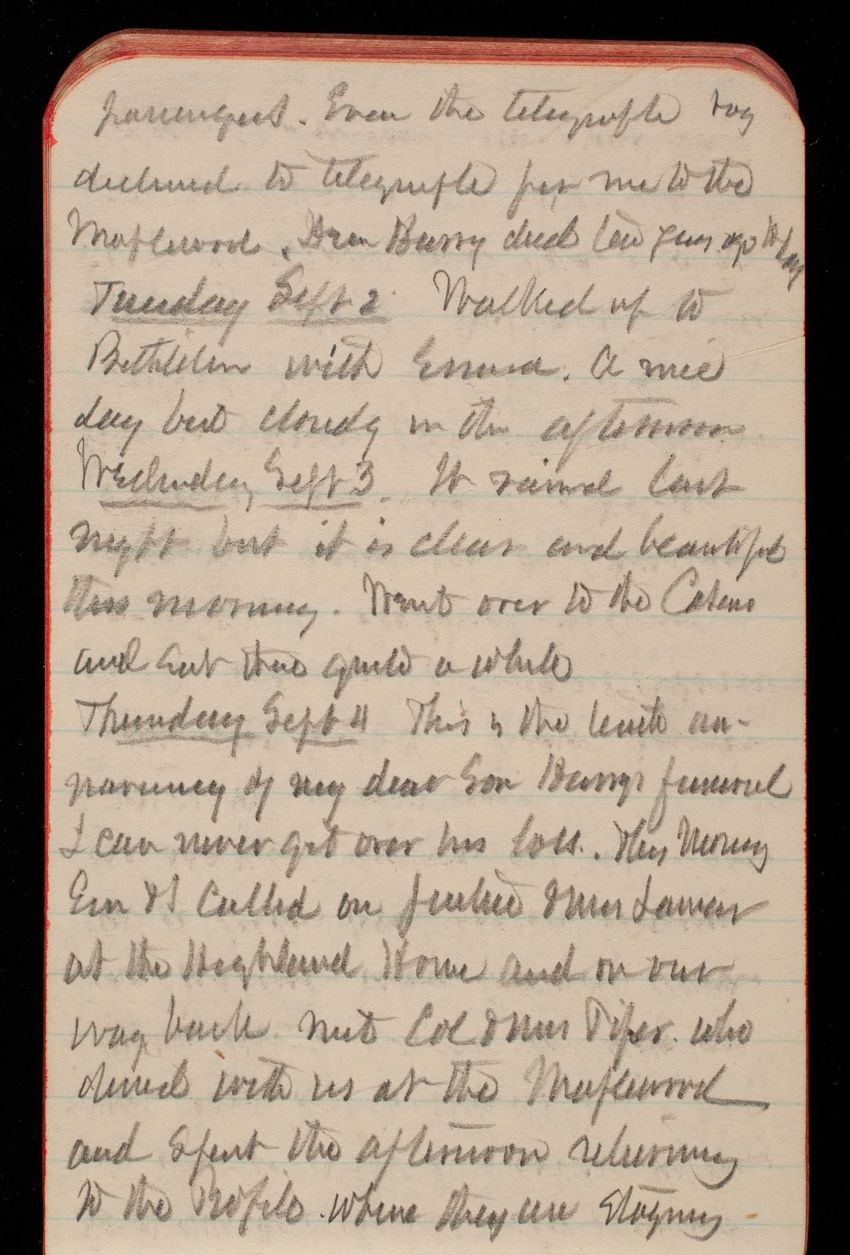 passengers. Even the telegraph boy
declined to telegraph for me to the
Maplewood. Dear Harry died ten years ago to day
Tuesday Sept 2 Walked up to
Bethlehem with Emma. A nice
day but cloudy in the afternoon
Wednesday Sept 3. It rained last
night but it is clear and beautiful
this morning. Went over to the Casino
and sat there quite a while
Thursday Sept 4 This is the tenth an-
niversary of my dear Son Harrys funeral
I can never get over his loss. This Morning
Em & I called on Justice & Mrs Lamar
at the Highland Home and on our
way back met Col & Mrs Piper who
dined with us at the Maplewood
and spent the afternoon returning
to the Profile where they are staying